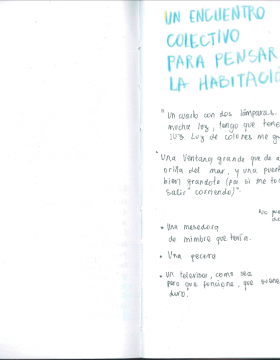 UN ENCUENTRO
COLECTIVO
PARA PENSAR
LA HABITACIÓ
"Un cuarto con dos lámparas.
mucha luz, tengo que tene
luz. Luz de colores me gu
"Una ventana grande que de a
orilla del mar, y una puert
bien grandota (por si me to
salir corriendo)".
No pue
• Una mesedora
de mimbre que tenía.
• Una pecera
• Un televisor, como sea
pero que funcione, que suene
duro.